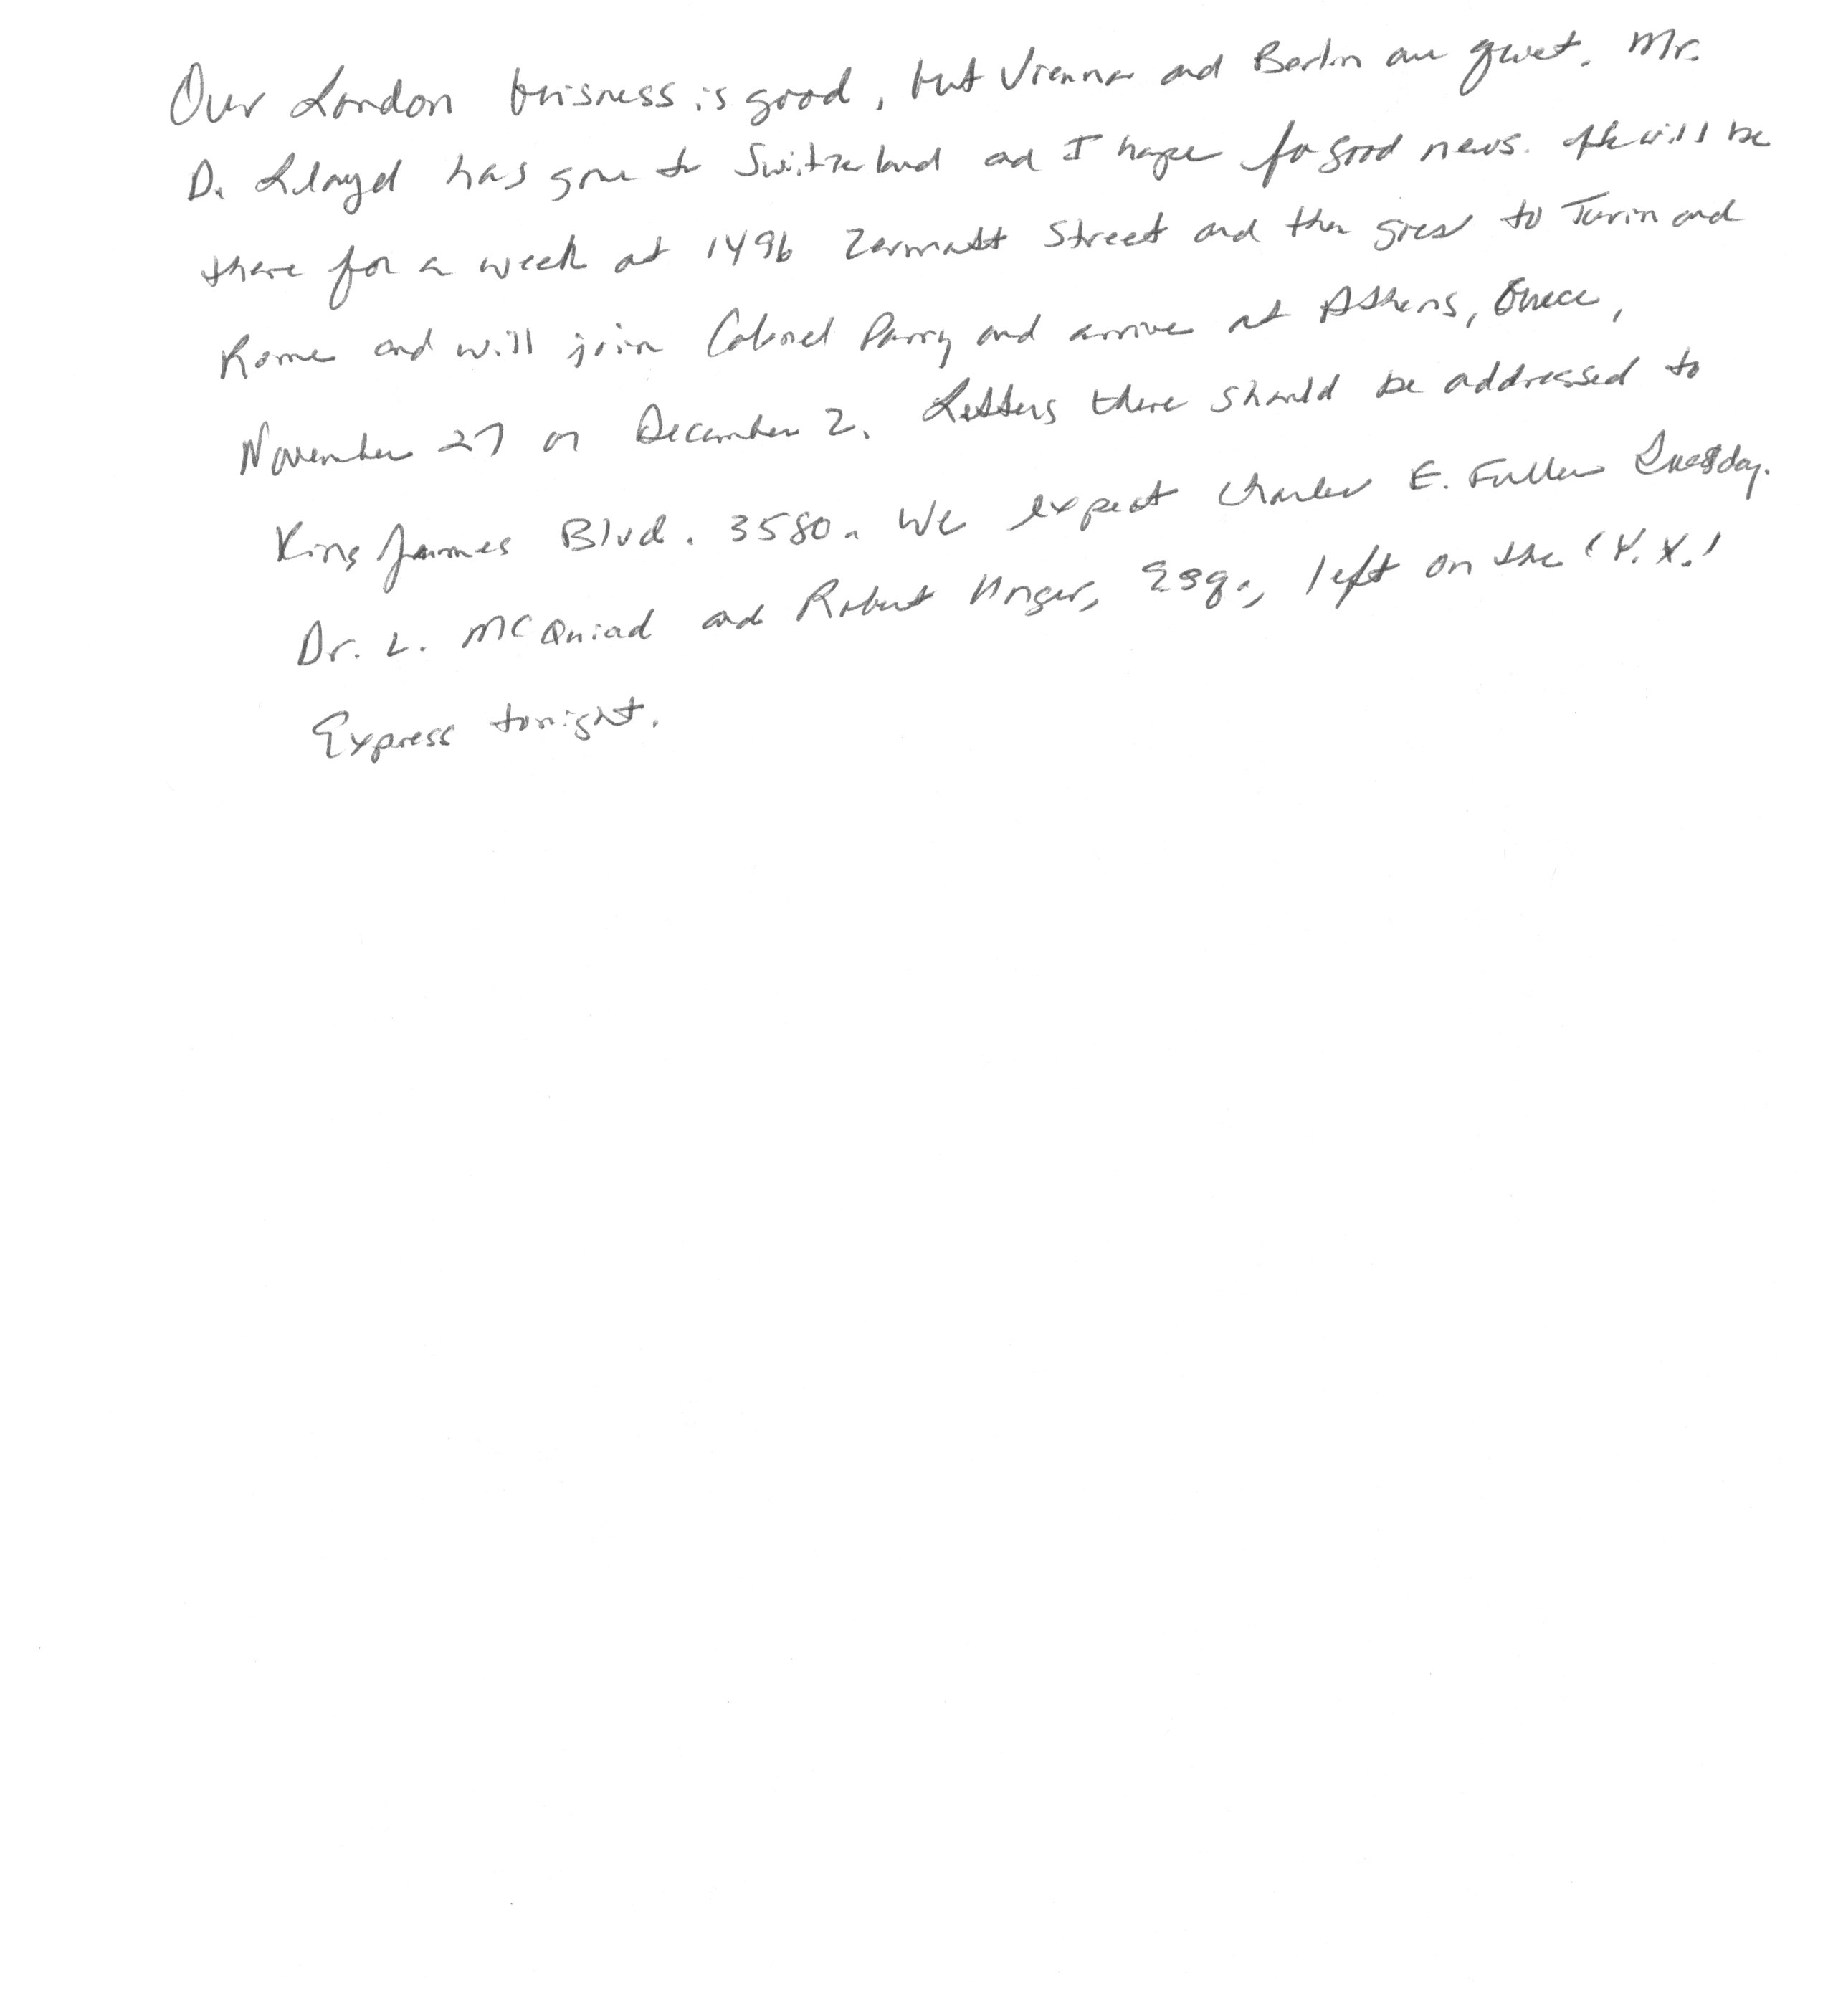 Our London buisness is good, but Vienna and Berlin are quiet. Mr.
D. Lloyd has gone to Switzerland and I hope for good news. He will be
there for a week at 1496 Zermatt Street and then goes to Turin and
Rome and will join Colonel Parry and arrive at Athens, Greece,
November 27 or December 2. Letters there should be addressed to
King James Blvd. 3580. We expect Charles E. Fuller Tuesday.
Dr. L. McQuiad and Robert Unger, Esq., left on the (Y.X.)
Express tonight.